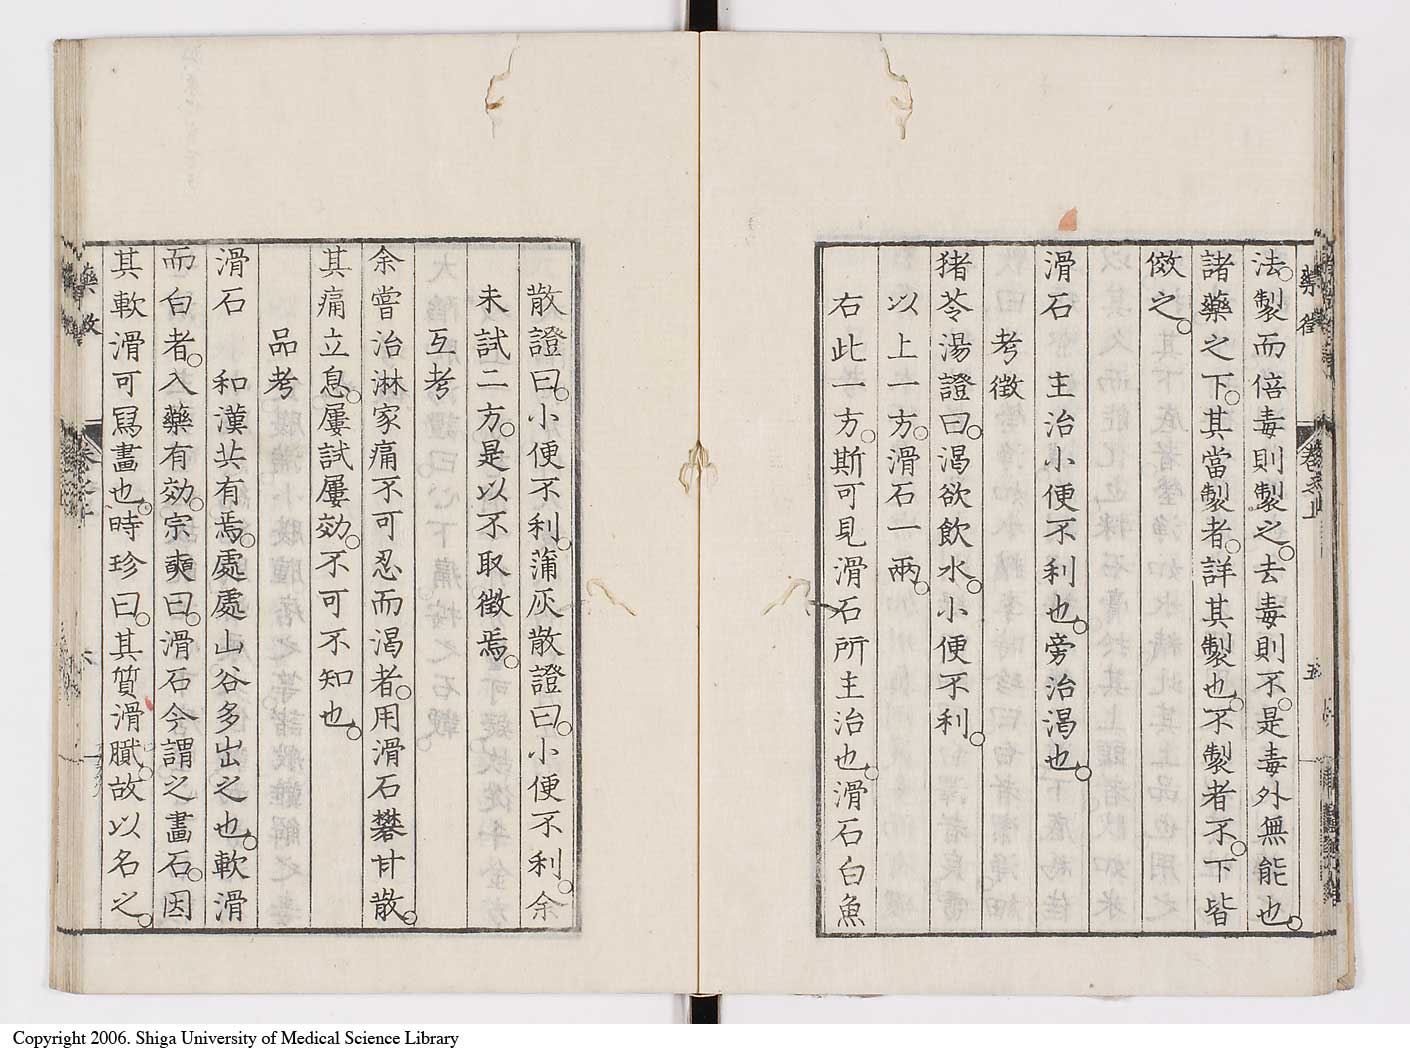 法。製而倍毒則製之。去毒則不。是毒外無能也。
諸藥之下。其當製者。詳其製也。不製者不。下皆
倣之。
滑石　主治小便不利也。旁治渴也。
考徵
猪苓湯證曰。渴欲飲水。小便不利。
以上一方。滑石一兩。
右此一方。斯可見滑石所主治也。滑石白魚
散證曰。小便不利。蒲灰散證曰。小便不利。余
未試二方。是以不取徵焉。
互考
余嘗治淋家痛不可忍而渴者。用滑石礬甘散。
其痛立息。屢試屢効。不可不知也。
品考
滑石　和漢共有焉。處處山谷多出之也。軟滑
而白者。入藥有効。宗奭曰。滑石今謂之畫石。因
其軟滑可寫畫也。時珍曰。其質滑膩。故以名之。
藥徵　卷之上　五
藥徵　卷之上　六
Copyright 2006. Shiga University of Medical Science Library